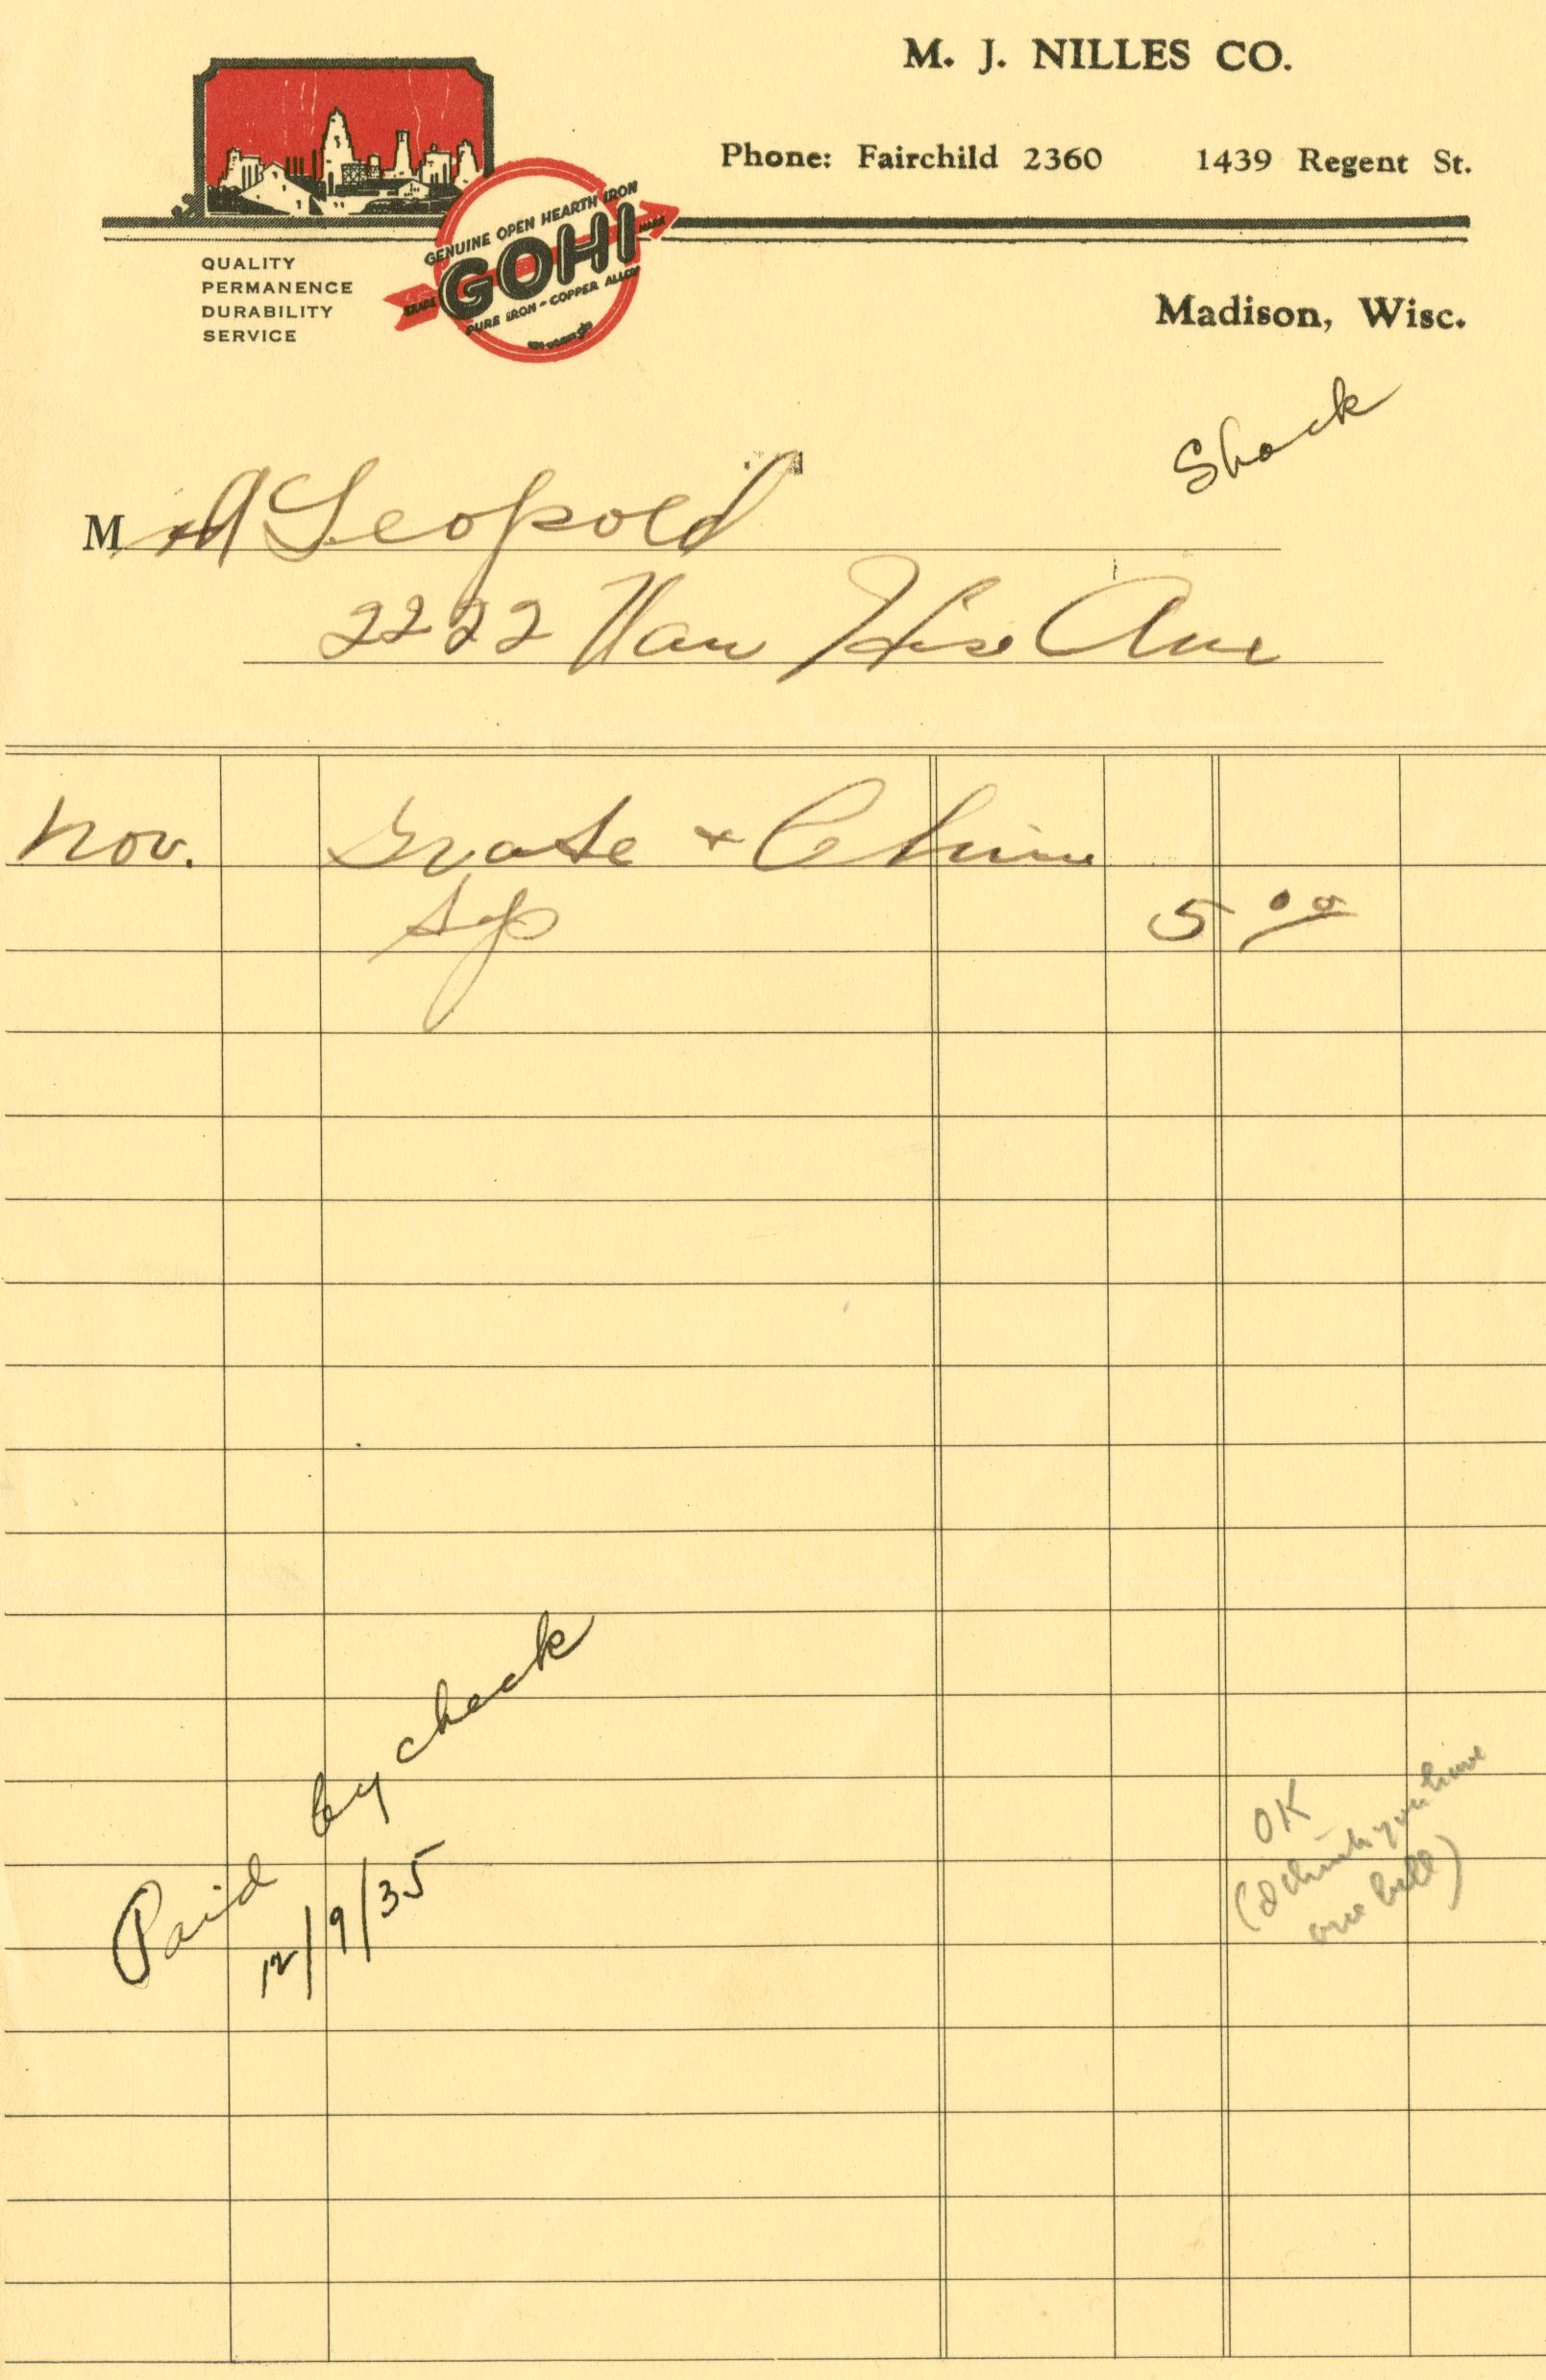 M. J. NILLES CO.
Phone: Fairchild 2360 1439 Regent St.
GENUINE OPEN HEARTH IRON
TRADE GOHI MARK
PURE IRON - COPPER ALLOY
QUALITY
PERMANENCE
DURABILITY
SERVICE
Madison, Wisc.
Shack
M A Leopold
2222 Van Hise Ave
Nov. Grate + Chim
5 00
Paid by check
12/9/35
OK
(I think you have
one bill)